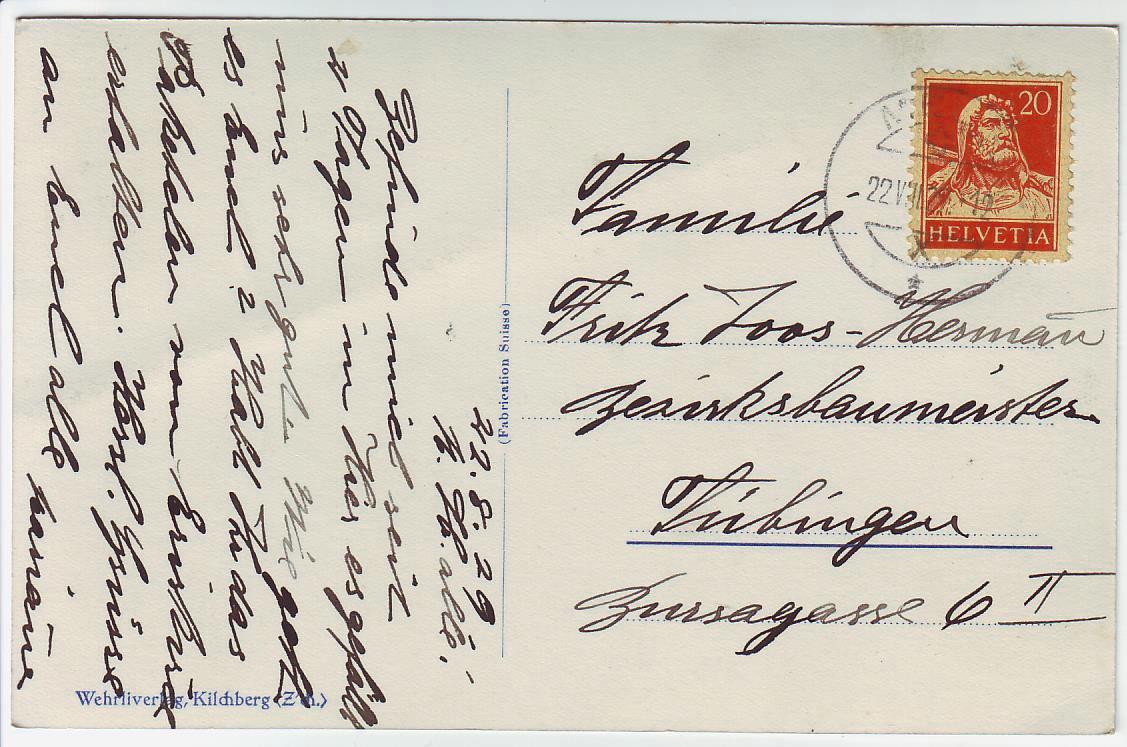 22.8.29
Befinde mich seit
2 Tagen in hier es gefällt
uns sehr gut. Wie geht
es Euch? Habt Ihr das
von
erhalten. Herzl. Grüsse
an Euch alle
(Fabrication Suisse)
Wehrliverlag, Kilchberg (Zch.)
20
HELVETIA
22 VIII 29
Familie
Fritz Joos-Herman̄
Bezirksbaumeister
Tübingen
Bursagasse 6 II